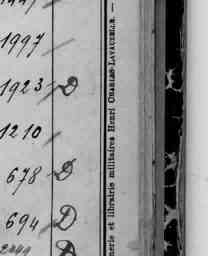 1997
1923 D
1210
678 D
694 D
D
nerie et librairie militaires Henri CHARLES-LAVAUZELLE. —